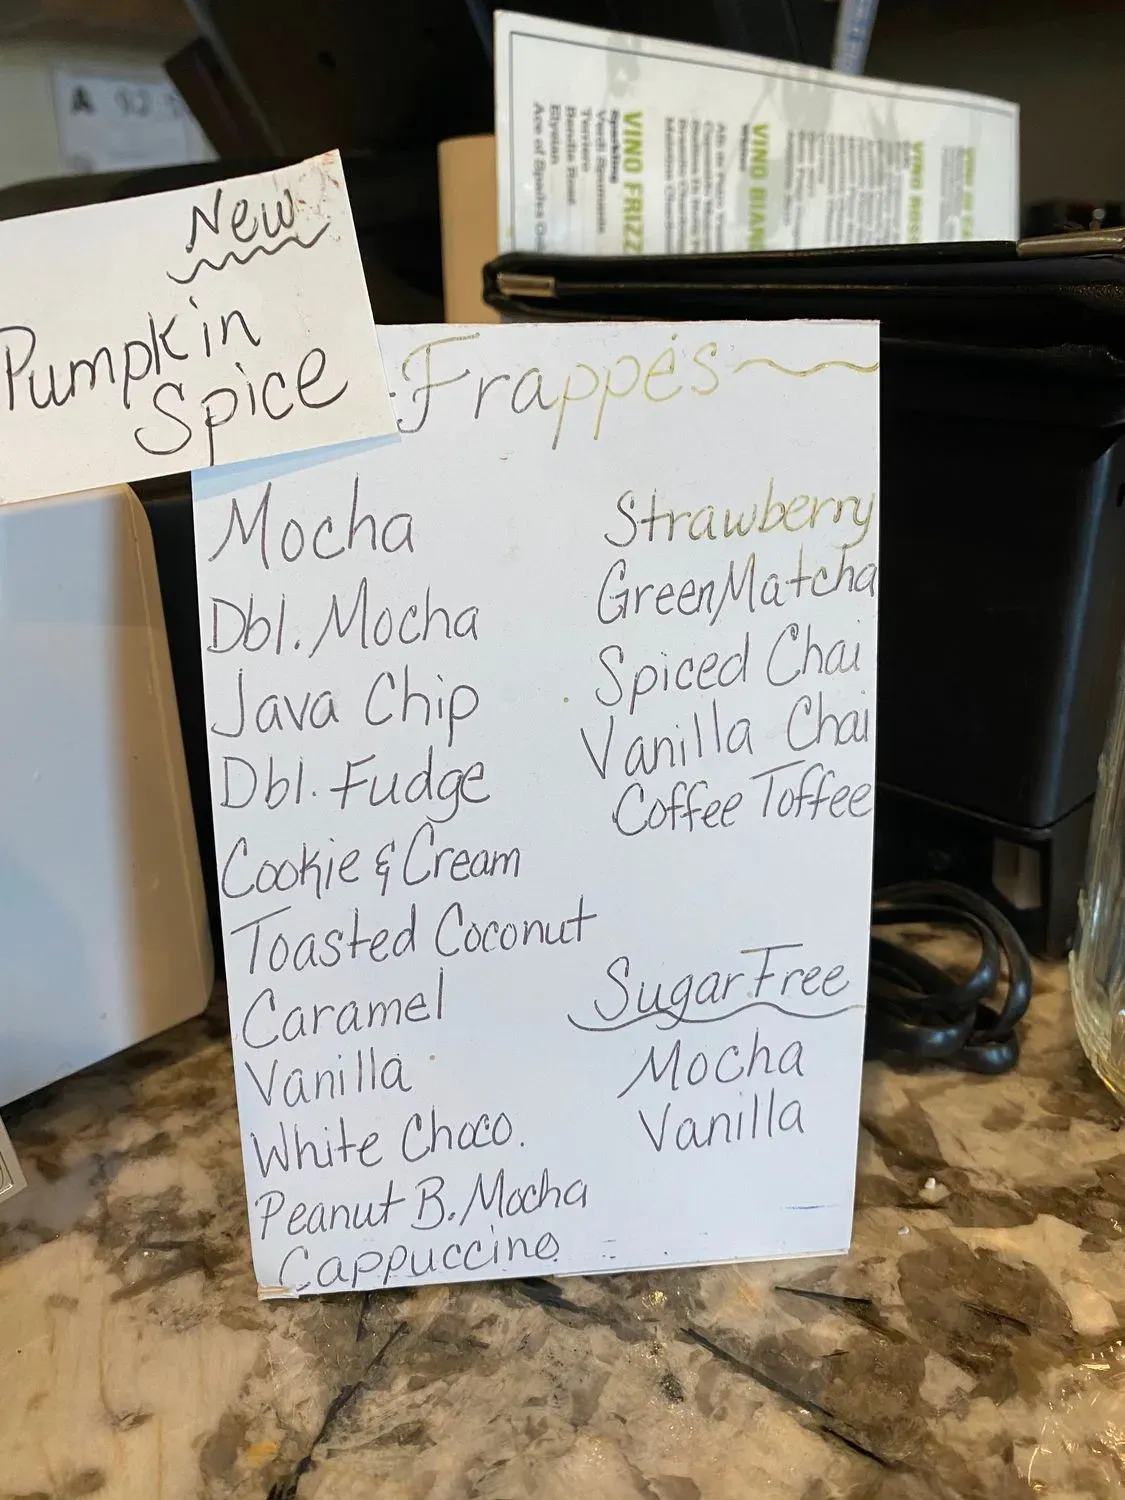 New
Pumpkin
Spice
Frappés
Mocha
Dbl. Mocha
Java Chip
Dbl. Fudge
Cookie & Cream
Toasted Coconut
Caramel
Vanilla
White Choco.
Peanut B. Mocha
Cappuccino
Strawberry
Green Matcha
Spiced Chai
Vanilla Chai
Coffee Toffee
Sugar Free
Mocha
Vanilla
A
VINO FRIZZ
Sparkling
VINO BIAN